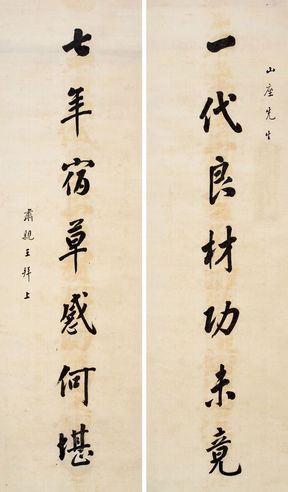 山座先生
一代良材功未竟
七年宿草感何堪
肅親王拜上